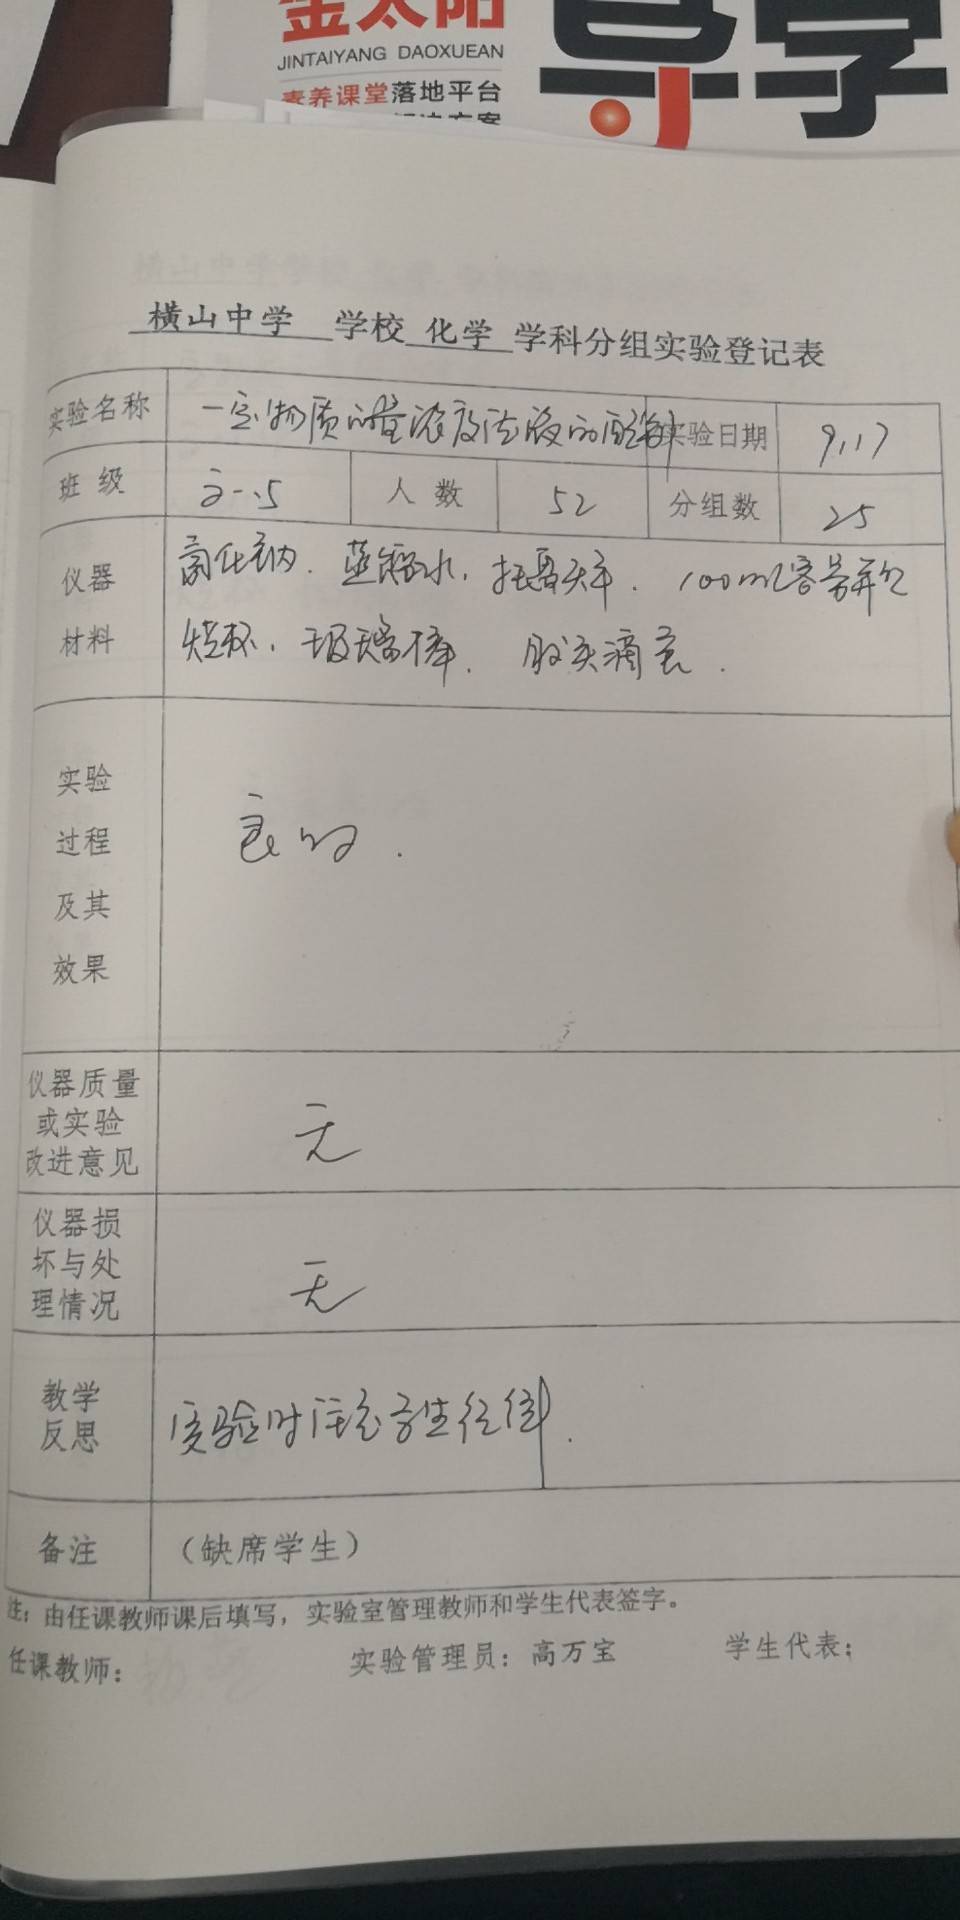 金太阳
导学
JINTAIYANG DAOXUEAN
素养课堂落地平台
横山中学 学校 化学 学科分组实验登记表
实验名称 一定物质的量浓度溶液的配制 实验日期 9.17
班级 人数 52 分组数 25
仪器材料 蒸馏水. 托盘天平. 100mL容量瓶
烧杯. 玻璃棒. 胶头滴管.
实验
过程
及其
效果 良好.
仪器质量
或实验
改进意见 无
仪器损
坏与处
理情况 无
教学
反思 实验时注意学生
备注 (缺席学生)
注:由任课教师课后填写,实验室管理教师和学生代表签字。
任课教师: 实验管理员:高万宝 学生代表: